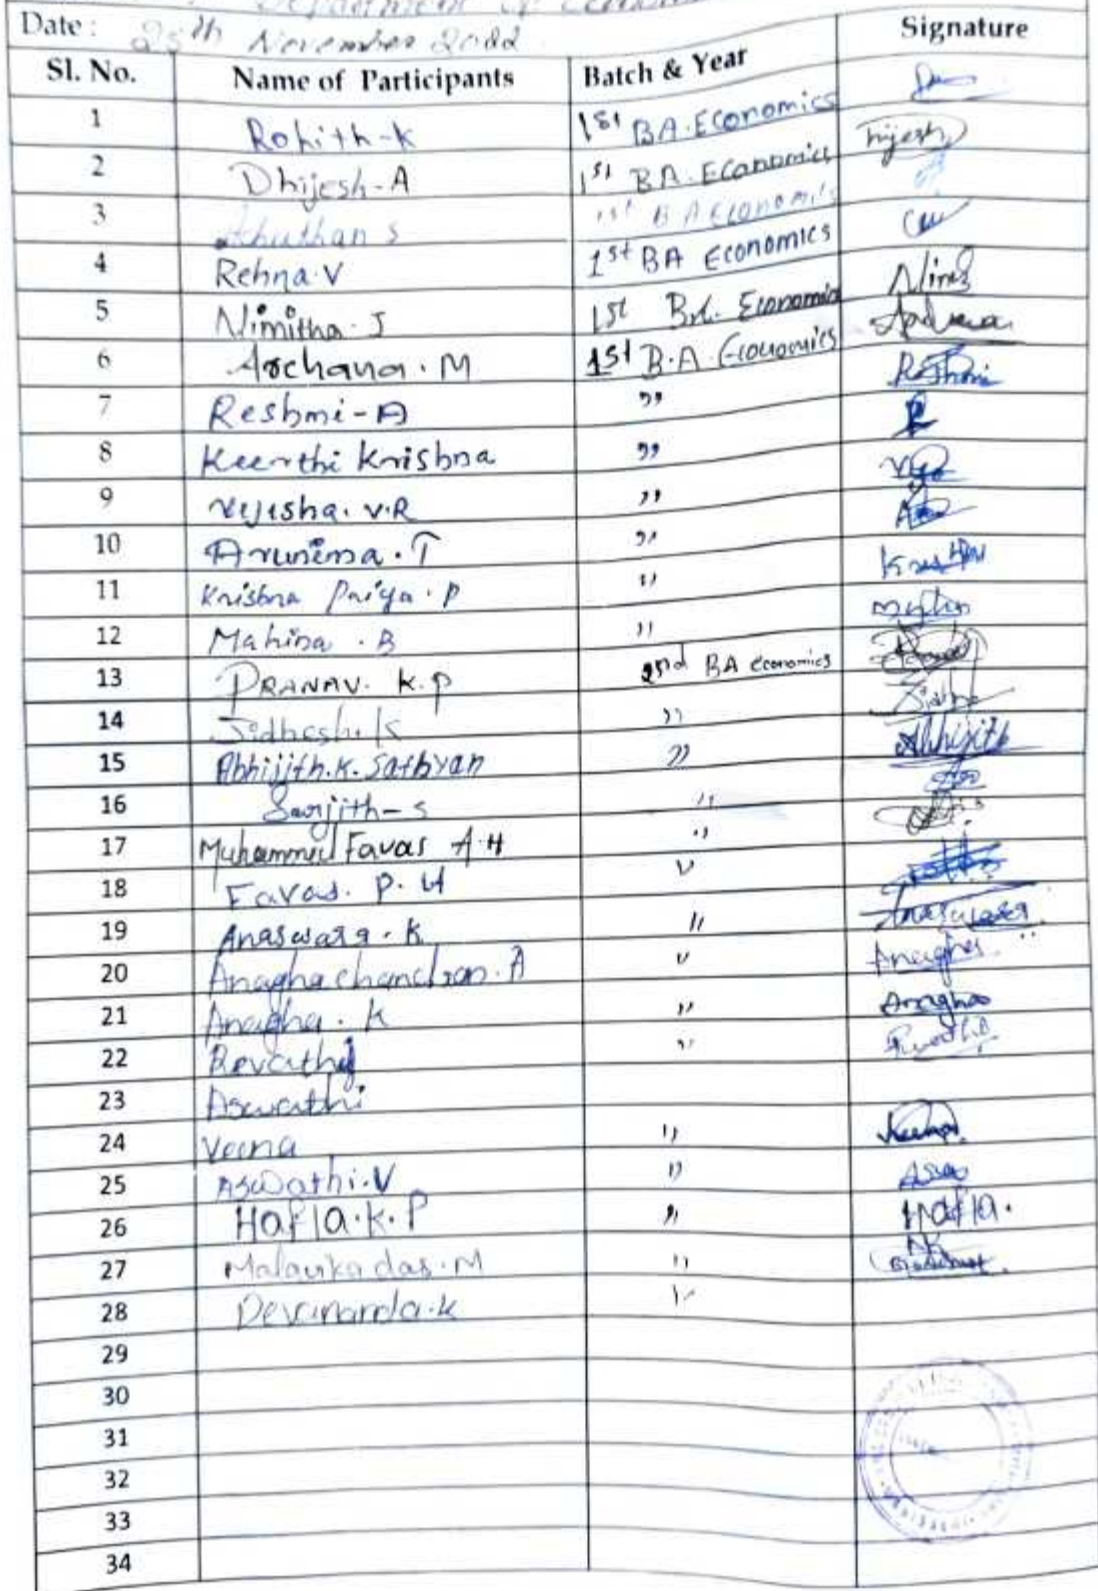 Department of
Date : 25th November 2022
Signature
Sl. No. Name of Participants Batch & Year
1 Rohith-K 1st BA.Economics
2 Dhijesh-A 1st BA.Economics
3 Achuthan S 1st BA Economics
4 Rehna.V 1st BA Economics
5 Nimitha.J 1st BA. Economics
6 Archana.M 1st B.A.Economics
7 Reshmi-A " Reshmi
8 Keerthi Krishna "
9 Vijisha.V.R "
10 Arunima.T "
11 Krishna Priya.P "
12 Mahina.B "
13 PRANAV. K.P 2nd BA economics
14 Jidhesh.K "
15 Abhijith.K.Sathyan " Abhijith
16 Sarjith-S "
17 Muhammed Favas A.H "
18 Favas. P.H "
19 Anaswara.K " Anaswara
20 Anagha chandran.A " Anagha
21 Anagha.K " Anagha
22 Revathy "
23 Aswathi
24 Veena "
25 Aswathi.V "
26 Hafla.K.P " Hafla.
27 Malavika das.M "
28 Devananda.K "
29
30
31
32
33
34